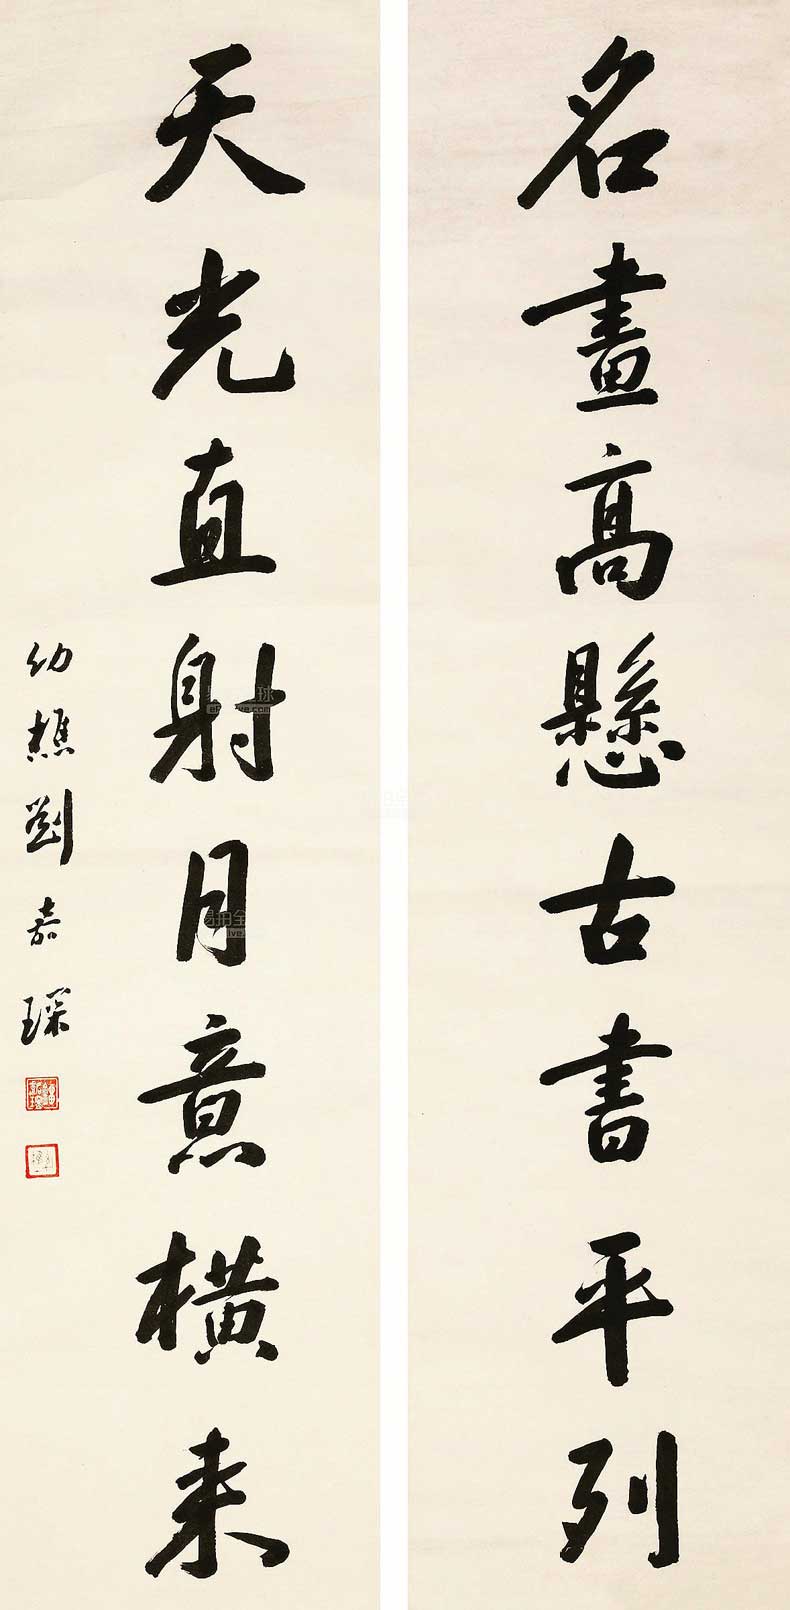 名畫高懸古書平列
天光直射月意橫来
幼樵劉嘉琛